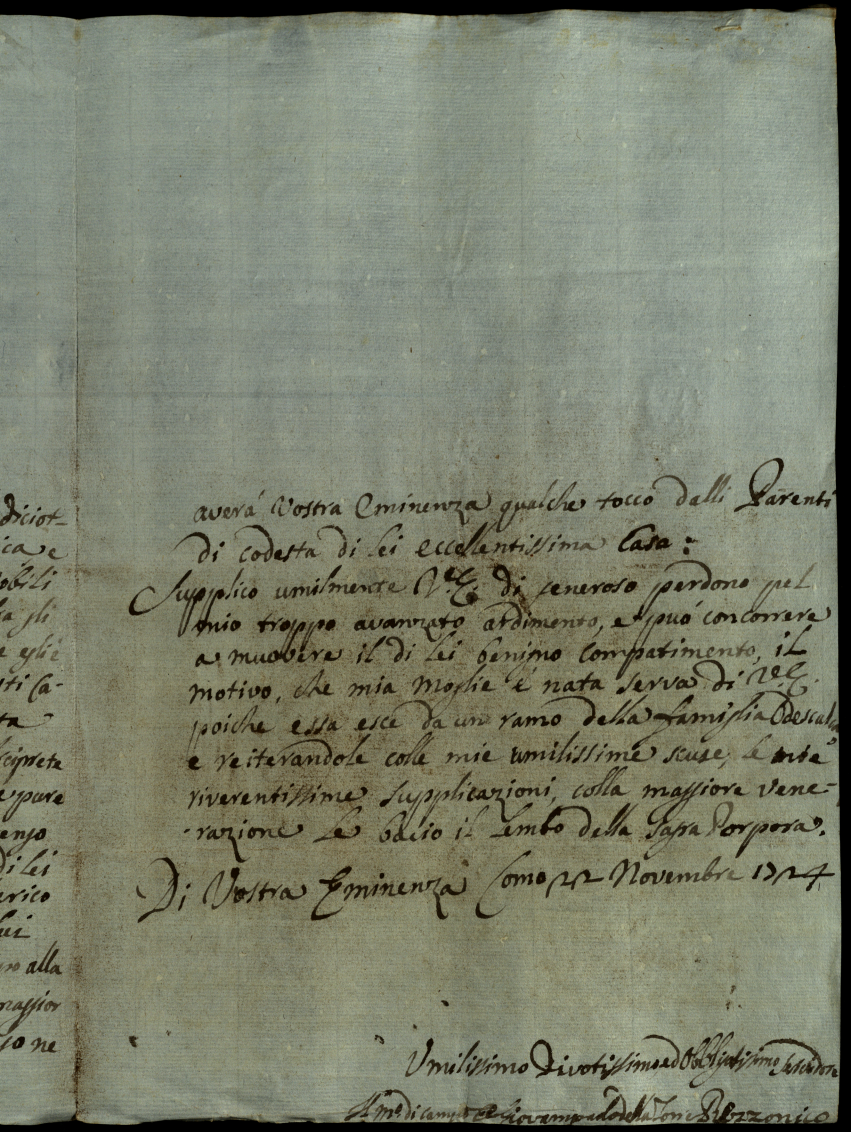 diciot-
ica e
obili
gli
e egli è
ti Ca-
ta
e pure
Di lei
erico
lui
alla
maggior
ne
averà Vostra Eminenza qualche tocco dalli Parenti
di codesta di lei eccellentissima Casa:
Supplico umilmente V.E. di generoso perdono pel
mio troppo avanzato ardimento, e può concorrere
a muovere il di lei benigno compatimento, il
motivo, che mia Moglie è nata serva di V.E.
poiche essa esce da un ramo della famiglia Odescal
e reiterandole colle mie umilissime scuse, le mie
riverentissime supplicazioni, colla maggiore vene-
razione le bacio il Lembo della Sagra Porpora.
Di Vostra Eminenza Como 22 Novembre 1724
Umilissimo Divotissimo ed Obbligatissimo Servidore
Giovampaolo della Torre Rezzonico